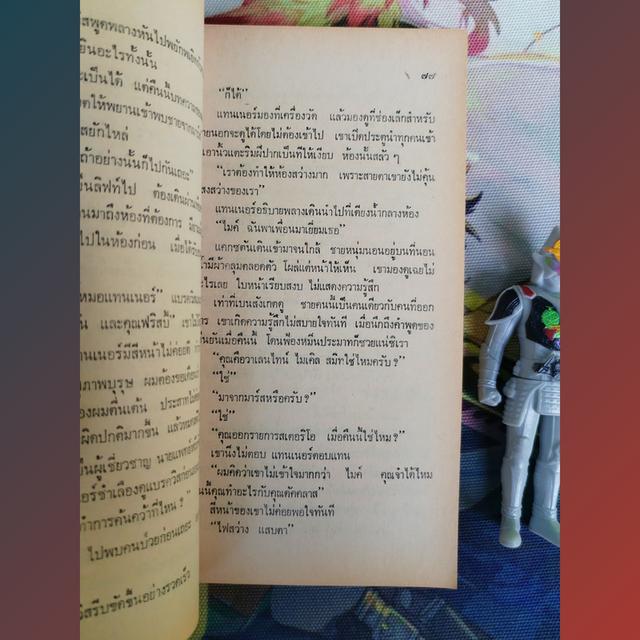 สพูดพลางหันไปพยักพเยิด
ยินอะไรทั้งนั้น
ะเป็นได้ แต่คืนนี้บทความ
ดให้พยานเข้าพบชายจาก
สยักไหล่
ถ้าอย่างนั้นก็ไปกันเถอะ"
ขึ้นลิฟท์ไป ต้องเดินผ่าน
นมาถึงห้องที่ต้องการ
ไปในห้องก่อน เมื่อได้
หมอแทนเนอร์"
น และคุณฟริสบี้"
แทนเนอร์มีสีหน้าไม่ค่อยดี
ภาพบุรุษ ผมต้องขอเตือน
องผมตื่นเต้น ประสาท
ผิดปกติมากขึ้น
ป็นผู้เชี่ยวชาญ นายแพทย์
อร์ชำเลืองดูแบรควิส
ทำการค้นคว้าที่ไหน?
ไปพบคนป่วยก่อนเถอะ
รีบขัดขึ้นอย่างรวดเร็ว
๗๗
"ก็ได้"
แทนเนอร์มองที่เครื่องวัด แล้วมองดูที่ช่องเล็กสำหรับ
ายนอกจะดูได้โดยไม่ต้องเข้าไป เขาเปิดประตูนำทุกคนเข้า
เอานิ้วแตะริมฝีปากเป็นทีให้เงียบ ห้องนั้นสลัว ๆ
"เราต้องทำให้ห้องสว่างมาก เพราะสายตาเขายังไม่คุ้น
สงสว่างของเรา"
แทนเนอร์อธิบายพลางเดินนำไปที่เตียงน้ำกลางห้อง
"ไมค์ ฉันพาเพื่อนมาเยี่ยมเธอ"
แคกซตันเดินเข้ามาจนใกล้ ชายหนุ่มนอนอยู่บนที่นอน
ามีผ้าคลุมตลอดตัว โผล่แต่หน้าให้เห็น เขามองดูเฉยไม่
ะไรเลย ใบหน้าเรียบสงบ ไม่แสดงความรู้สึก
เท่าที่เบนสังเกตดู ชายคนนี้เป็นคนเดียวกับคนที่ออก
การ เขาเกิดความรู้สึกไม่สบายใจทันที เมื่อนึกถึงคำพูดของ
นยันเมื่อคืนนี้ โดนฟ้องหมิ่นประมาทก็ช่วยแน่ซีเรา
"คุณคือวาเลนไทน์ ไมเคิล สมิทใช่ไหมครับ?"
"ใช่"
"มาจากมาร์สหรือครับ?"
"ใช่"
"คุณออกรายการสเตอริโอ เมื่อคืนนี้ใช่ไหม?"
เขานิ่งไม่ตอบ แทนเนอร์ตอบแทน
"ผมคิดว่าเขาไม่เข้าใจมากกว่า ไมค์ คุณจำได้ไหม
นนี้คุณทำอะไรกับคุณดักคลาส"
สีหน้าของเขาไม่ค่อยพอใจทันที
"ไฟสว่าง แสบตา"